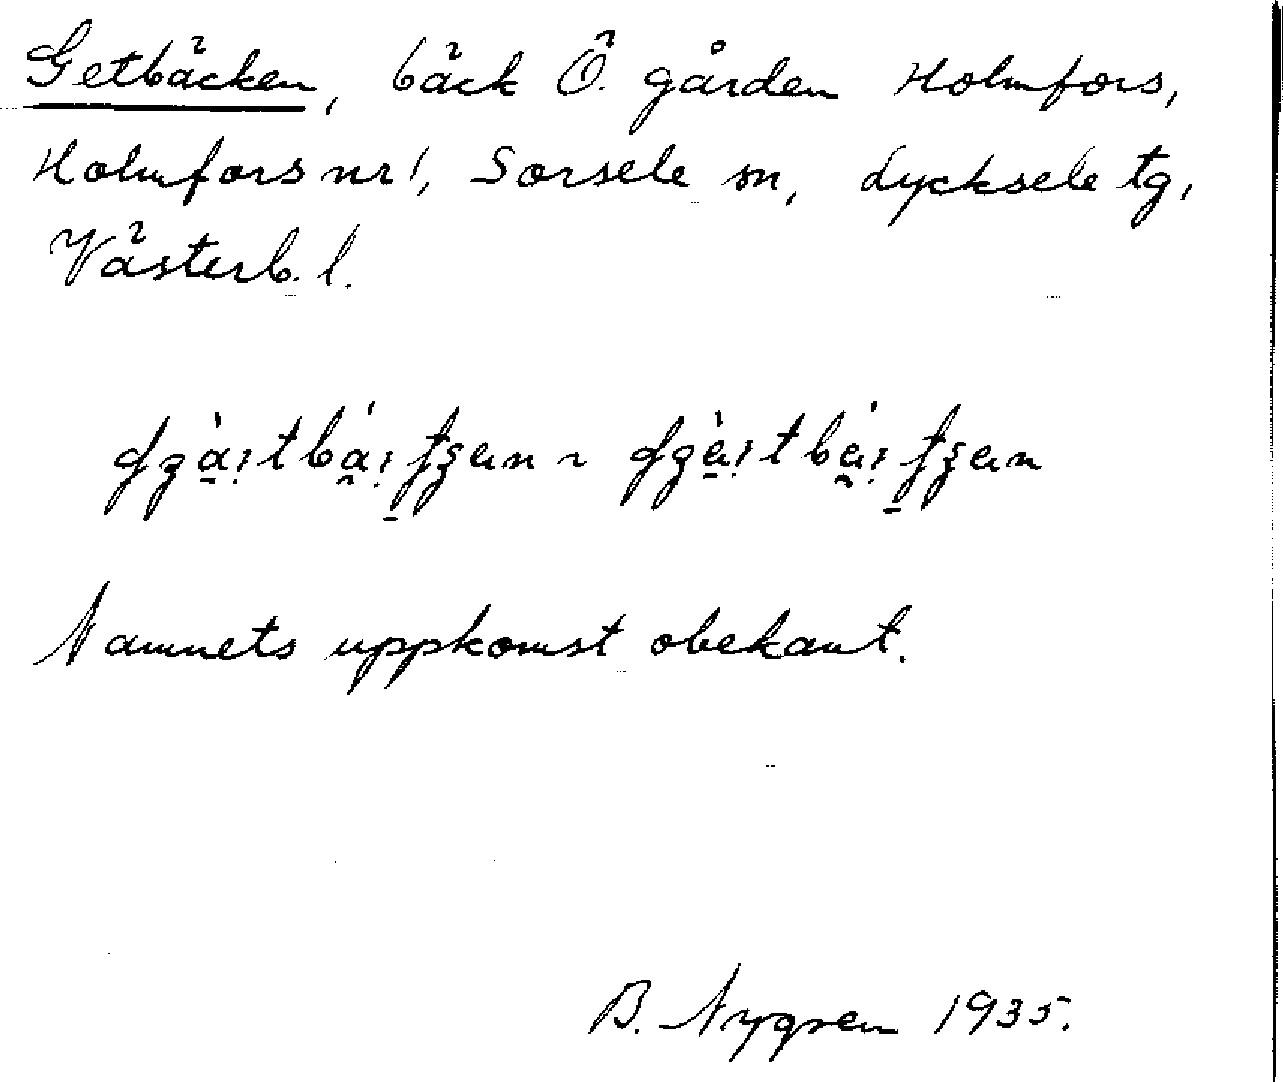 Getbäcken, bäck Ö. gården Holmfors,
Holmfors nr 1, Sorsele sn, Lycksele tg,
Västerb. l.
Namnets uppkomst obekant.
B. Nygren 1935.